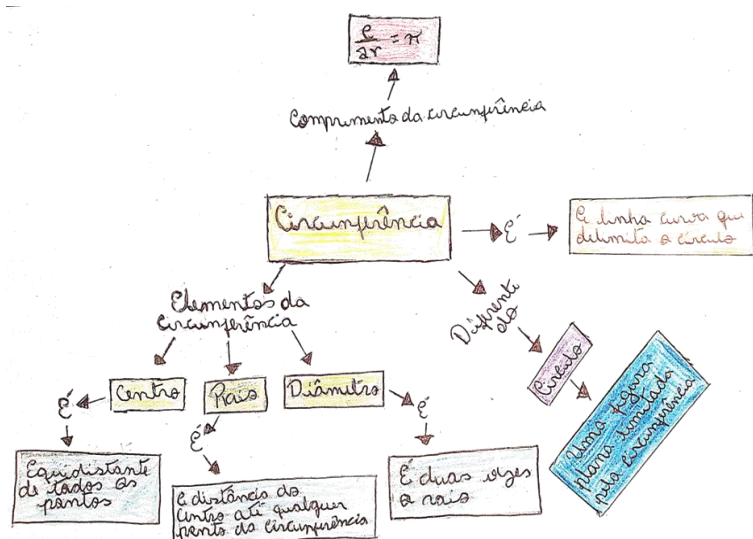 C/2r = π
Comprimento da circunferência
Circunferência
É
A linha curva que
delimita o círculo
Elementos da
circunferência
Diferente
do
Círculo
Uma figura
plana limitada
pela circunferência
Centro
Raio
Diâmetro
É
É
É
Equidistante
de todos os
pontos
A distância do
centro até qualquer
ponto da circunferência
É duas vezes
o raio